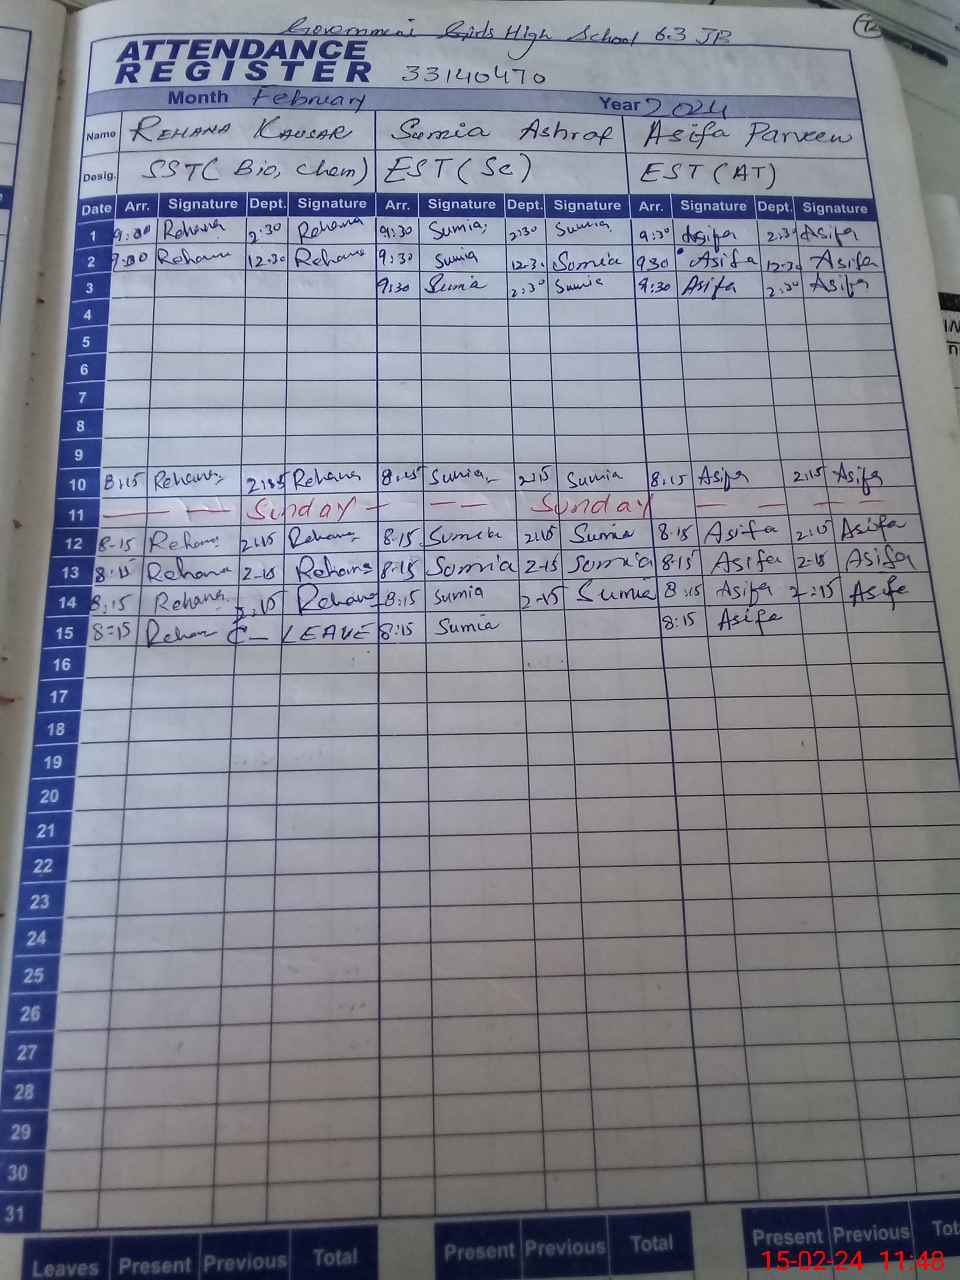 Government Girls High School 63 JB
72
ATTENDANCE
REGISTER 33140470
Month February Year 2024
Name REHANA KAUSAR Sumia Ashraf Asifa Parveen
Desig. SST( Bio, Chem) EST (Sc) EST (AT)
Date Arr. Signature Dept. Signature Arr. Signature Dept. Signature Arr. Signature Dept. Signature
1 9:30 Rehana 2:30 Rehana 9:30 Sumia 2:30 Sumia 9:30 Asifa 2:30 Asifa
2 9:30 Rehana 12:30 Rehana 9:30 Sumia 12:30 Somia 930 Asifa 12:30 Asifa
3 9:30 Sumia 2:30 Sumia 9:30 Asifa 2:30 Asifa
4
5
6
7
8
9
10 8:15 Rehana 2:15 Rehana 8:15 Sumia 2:15 Sumia 8:15 Asifa 2:15 Asifa
11 — — — Sunday — — — Sunday — — — —
12 8-15 Rehana 2:15 Rehana 8:15 Sumia 2:15 Sumia 8:15 Asifa 2:15 Asifa
13 8:15 Rehana 2-15 Rehana 8:15 Somia 2-15 Somia 8:15 Asifa 2-15 Asifa
14 8:15 Rehana 2:15 Rehana 8:15 Sumia 2-15 Sumia 8:15 Asifa 2:15 Asifa
15 8=15 Rehan C— LEAVE 8:15 Sumia 8:15 Asifa
16
17
18
19
20
21
22
23
24
25
26
27
28
29
30
31
Leaves Present Previous Total Present Previous Total Present Previous
15-02-24 11:48